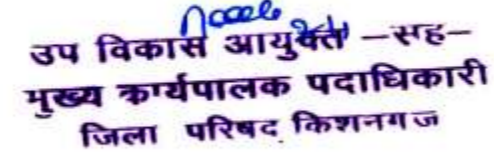 उप विकास आयुक्त –सह–
मुख्य कार्यपालक पदाधिकारी
जिला परिषद किशनगज